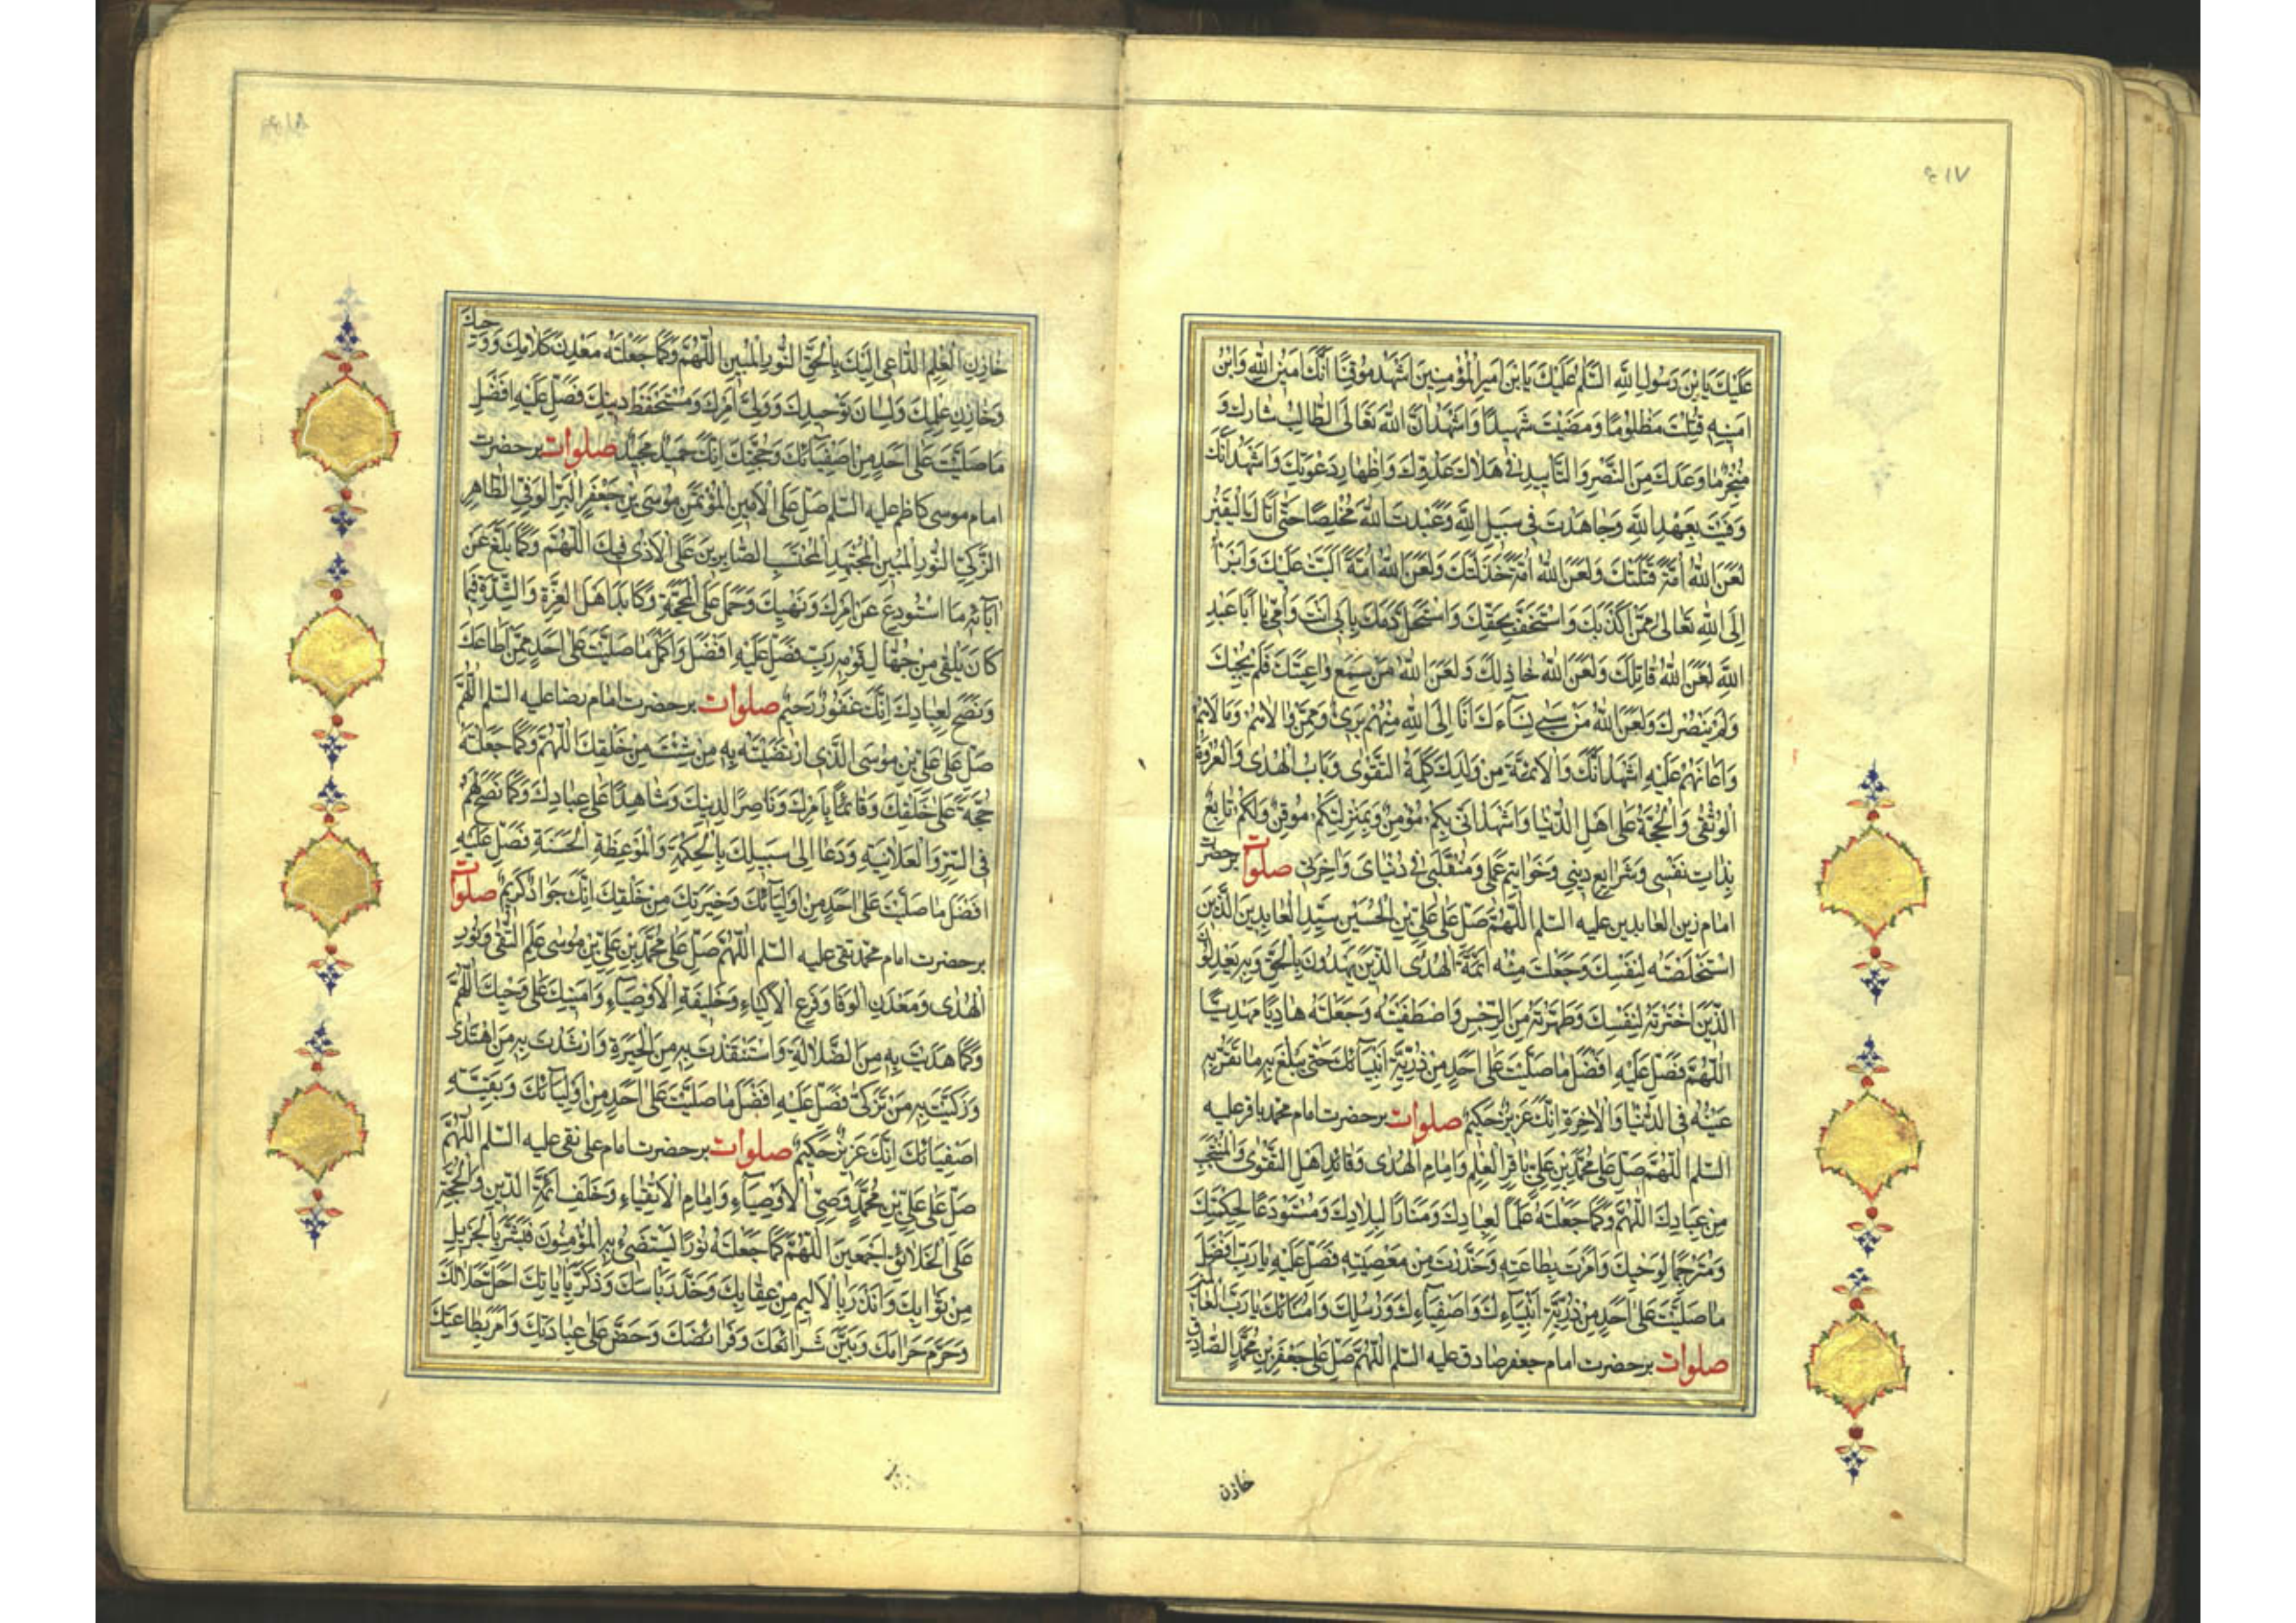 ٤١٧
عَلَيْكَ يَا بْنَ رَسُولِ اللهِ السَّلَمُ عَلَيْكَ يَا بْنَ اَمِيرِ الْمُؤْمِنِينَ اَشْهَدُ مُوقِنًا اَنَّكَ اَمِينُ اللهِ وَابْنُ
اَمِينِهِ قُتِلْتَ مَظْلُومًا وَمَضَيْتَ شَهِيدًا وَاَشْهَدُ اَنَّ اللهَ تَعَالَى الطَّالِبُ بِثَارِكَ وَ
مُنْجِزٌ مَا وَعَدَكَ مِنَ النَّصْرِ وَالتَّأْيِيدِ فِي هَلَاكِ عَدُوِّكَ وَاِظْهَارِ دَعْوَتِكَ وَاَشْهَدُ اَنَّكَ
وَفَيْتَ بِعَهْدِ اللهِ وَجَاهَدْتَ فِي سَبِيلِ اللهِ وَعَبَدْتَ اللهَ مُخْلِصًا حَتَّى اَتَاكَ الْيَقِينُ
لَعَنَ اللهُ اُمَّةً قَتَلَتْكَ وَلَعَنَ اللهُ اُمَّةً خَذَلَتْكَ وَلَعَنَ اللهُ اُمَّةً اَلَّبَتْ عَلَيْكَ وَاَبْرَأُ
اِلَى اللهِ تَعَالَى مِمَّنْ اَكْذَبَكَ وَاسْتَخَفَّ بِحَقِّكَ وَاسْتَحَلَّ دَمَكَ بِاَبِي اَنْتَ وَاُمِّي يَا اَبَا عَبْدِ
اللهِ لَعَنَ اللهُ قَاتِلَكَ وَلَعَنَ اللهُ خَاذِلَكَ وَلَعَنَ اللهُ مَنْ سَمِعَ وَاعِيَتَكَ فَلَمْ يُجِبْكَ
وَلَمْ يَنْصُرْكَ وَلَعَنَ اللهُ مَنْ سَبَى نِسَآءَكَ اَنَا اِلَى اللهِ مِنْهُمْ بَرِيءٌ وَمِمَّنْ وَالَاهُمْ وَمَالَاَهُمْ
وَاَعَانَهُمْ عَلَيْهِ اَشْهَدُ اَنَّكَ وَالْاَئِمَّةَ مِنْ وَلَدِكَ كَلِمَةُ التَّقْوَى وَبَابُ الْهُدَى وَالْعُرْوَةُ
الْوُثْقَى وَالْحُجَّةُ عَلَى اَهْلِ الدُّنْيَا وَاَشْهَدُ اَنِّي بِكُمْ مُؤْمِنٌ وَبِمَنْزِلَتِكُمْ مُوقِنٌ وَلَكُمْ تَابِعٌ
بِذَاتِ نَفْسِي وَشَرَايِعِ دِينِي وَخَوَاتِيمِ عَمَلِي وَمُنْقَلَبِي فِي دُنْيَايَ وَآخِرَتِي صلوات بر حضرت
امام زين العابدين عليه السلم اَللّٰهُمَّ صَلِّ عَلَى عَلِيِّ بْنِ الْحُسَيْنِ سَيِّدِ الْعَابِدِينَ الَّذِي
اسْتَخْلَصْتَهُ لِنَفْسِكَ وَجَعَلْتَ مِنْهُ اَئِمَّةَ الْهُدَى الَّذِينَ يَهْدُونَ بِالْحَقِّ وَبِهِ يَعْدِلُونَ
الَّذِي اخْتَرْتَهُ لِنَفْسِكَ وَطَهَّرْتَهُ مِنَ الرِّجْسِ وَاصْطَفَيْتَهُ وَجَعَلْتَهُ هَادِيًا مَهْدِيًّا
اَللّٰهُمَّ فَصَلِّ عَلَيْهِ اَفْضَلَ مَا صَلَّيْتَ عَلَى اَحَدٍ مِنْ ذُرِّيَّةِ اَنْبِيَآئِكَ حَتَّى يَبْلُغَ بِهِ مَا تَقَرُّ بِهِ
عَيْنُهُ فِي الدُّنْيَا وَالْاٰخِرَةِ اِنَّكَ عَزِيزٌ حَكِيمٌ صلوات بر حضرت امام محمد باقر عليه
السلم اَللّٰهُمَّ صَلِّ عَلَى مُحَمَّدِ بْنِ عَلِيٍّ بَاقِرِ الْعِلْمِ وَاِمَامِ الْهُدَى وَقَائِدِ اَهْلِ التَّقْوَى وَالْمُنْتَجَبِ
مِنْ عِبَادِكَ اَللّٰهُمَّ وَكَمَا جَعَلْتَهُ عَلَمًا لِعِبَادِكَ وَمَنَارًا لِبِلَادِكَ وَمُسْتَوْدَعًا لِحِكْمَتِكَ
وَمُتَرْجِمًا لِوَحْيِكَ وَاَمَرْتَ بِطَاعَتِهِ وَحَذَّرْتَ مِنْ مَعْصِيَتِهِ فَصَلِّ عَلَيْهِ يَا رَبِّ اَفْضَلَ
مَا صَلَّيْتَ عَلَى اَحَدٍ مِنْ ذُرِّيَّةِ اَنْبِيَآءِكَ وَاَصْفِيَآءِكَ وَرُسُلِكَ وَاُمَنَائِكَ يَا رَبَّ الْعَالَمِينَ
صلوات بر حضرت امام جعفر صادق عليه السلم اَللّٰهُمَّ صَلِّ عَلَى جَعْفَرِ بْنِ مُحَمَّدٍ الصَّادِقِ
خازن
خَازِنِ الْعِلْمِ الدَّاعِي اِلَيْكَ بِالْحَقِّ النُّورِ الْمُبِينِ اَللّٰهُمَّ وَكَمَا جَعَلْتَهُ مَعْدِنَ كَلَامِكَ وَوَحْيِكَ
وَخَازِنَ عِلْمِكَ وَلِسَانَ تَوْحِيدِكَ وَوَلِيَّ اَمْرِكَ وَمُسْتَحْفَظَ دِينِكَ فَصَلِّ عَلَيْهِ اَفْضَلَ
مَا صَلَّيْتَ عَلَى اَحَدٍ مِنْ اَصْفِيَآئِكَ وَحُجَجِكَ اِنَّكَ حَمِيدٌ مَجِيدٌ صلوات بر حضرت
امام موسى كاظم عليه السلم صَلِّ عَلَى الْاَمِينِ الْمُؤْتَمَنِ مُوسَى بْنِ جَعْفَرٍ الْبَرِّ الْوَفِيِّ الطَّاهِرِ
الزَّكِيِّ النُّورِ الْمُبِينِ الْمُجْتَهِدِ الْمُحْتَسِبِ الصَّابِرِينَ عَلَى الْاَذَى فِيكَ اَللّٰهُمَّ وَكَمَا بَلَّغَ عَنْ
اٰبَآئِهِ مَا اسْتُودِعَ عَنْ اَمْرِكَ وَنَهْيِكَ وَحَمَلَ عَلَى الْمَحَجَّةِ وَكَابَدَ اَهْلَ الْعِزَّةِ وَالشِّدَّةِ فِيمَا
كَانَ يَلْقَى مِنْ جُهَّالِ قَوْمِهِ رَبِّ فَصَلِّ عَلَيْهِ اَفْضَلَ وَاَكْمَلَ مَا صَلَّيْتَ عَلَى اَحَدٍ مِمَّنْ اَطَاعَكَ
وَنَصَحَ لِعِبَادِكَ اِنَّكَ غَفُورٌ رَحِيمٌ صلوات بر حضرت امام رضا عليه السلم اَللّٰهُمَّ
صَلِّ عَلَى عَلِيِّ بْنِ مُوسَى الَّذِي ارْتَضَيْتَهُ بِهِ مَنْ شِئْتَ مِنْ خَلْقِكَ اَللّٰهُمَّ وَكَمَا جَعَلْتَهُ
حُجَّةً عَلَى خَلْقِكَ وَقَائِمًا بِاَمْرِكَ وَنَاصِرًا لِدِينِكَ وَشَاهِدًا عَلَى عِبَادِكَ وَكَمَا نَصَحَ لَهُمْ
فِي السِّرِّ وَالْعَلَانِيَةِ وَدَعَا اِلَى سَبِيلِكَ بِالْحِكْمَةِ وَالْمَوْعِظَةِ الْحَسَنَةِ فَصَلِّ عَلَيْهِ
اَفْضَلَ مَا صَلَّيْتَ عَلَى اَحَدٍ مِنْ اَوْلِيَآئِكَ وَخِيَرَتِكَ مِنْ خَلْقِكَ اِنَّكَ جَوَادٌ كَرِيمٌ صلوات
بر حضرت امام محمد تقى عليه السلم اَللّٰهُمَّ صَلِّ عَلَى مُحَمَّدِ بْنِ عَلِيِّ بْنِ مُوسَى عَلَمِ التُّقَى وَنُورِ
الْهُدَى وَمَعْدِنِ الْوَفَا وَفَرْعِ الْاَزْكِيَاءِ وَخَلِيفَةِ الْاَوْصِيَاءِ وَاَمِينِكَ عَلَى وَحْيِكَ اَللّٰهُمَّ
وَكَمَا هَدَيْتَ بِهِ مِنَ الضَّلَالَةِ وَاسْتَنْقَذْتَ بِهِ مِنَ الْحَيْرَةِ وَاَرْشَدْتَ بِهِ مَنِ اهْتَدَى
وَزَكَّيْتَ بِهِ مَنْ تَزَكَّى فَصَلِّ عَلَيْهِ اَفْضَلَ مَا صَلَّيْتَ عَلَى اَحَدٍ مِنْ اَوْلِيَآئِكَ وَبَقِيَّةِ
اَصْفِيَآئِكَ اِنَّكَ عَزِيزٌ حَكِيمٌ صلوات بر حضرت امام على نقى عليه السلم اَللّٰهُمَّ
صَلِّ عَلَى عَلِيِّ بْنِ مُحَمَّدٍ وَصِيِّ الْاَوْصِيَآءِ وَاِمَامِ الْاَتْقِيَاءِ وَخَلَفِ اَئِمَّةِ الدِّينِ وَالْحُجَّةِ
عَلَى الْخَلَائِقِ اَجْمَعِينَ اَللّٰهُمَّ كَمَا جَعَلْتَهُ نُورًا يَسْتَضِيءُ بِهِ الْمُؤْمِنُونَ فَبَشَّرَ بِالْجَزِيلِ
مِنْ ثَوَابِكَ وَاَنْذَرَ بِالْاَلِيمِ مِنْ عِقَابِكَ وَحَذَّرَ بَاْسَكَ وَذَكَّرَ بِاٰيَاتِكَ اَحَلَّ حَلَالَكَ
وَحَرَّمَ حَرَامَكَ وَبَيَّنَ شَرَائِعَكَ وَفَرَائِضَكَ وَحَضَّ عَلَى عِبَادَتِكَ وَاَمَرَ بِطَاعَتِكَ